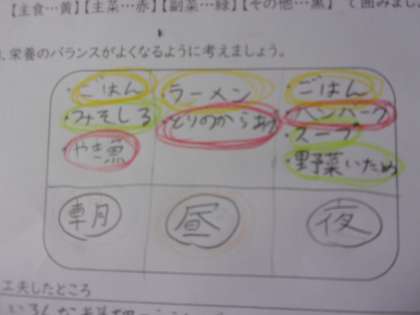 【主食…黄】【主菜…赤】【副菜…緑】【その他…黒】で囲みまし
.栄養のバランスがよくなるように考えましょう。
・ごはん
・みそしる
・やき魚
朝
・ラーメン
・とりのからあげ
昼
・ごはん
・ハンバーグ
・スープ
・野菜いため
夜
工夫したところ